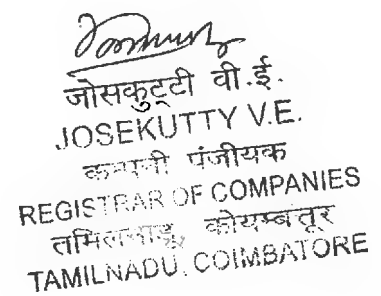 जोसकुट्टी वी.ई.
JOSEKUTTY V.E.
कम्पनी पंजीयक
REGISTRAR OF COMPANIES
तमिलनाडु, कोयम्बतूर
TAMILNADU, COIMBATORE